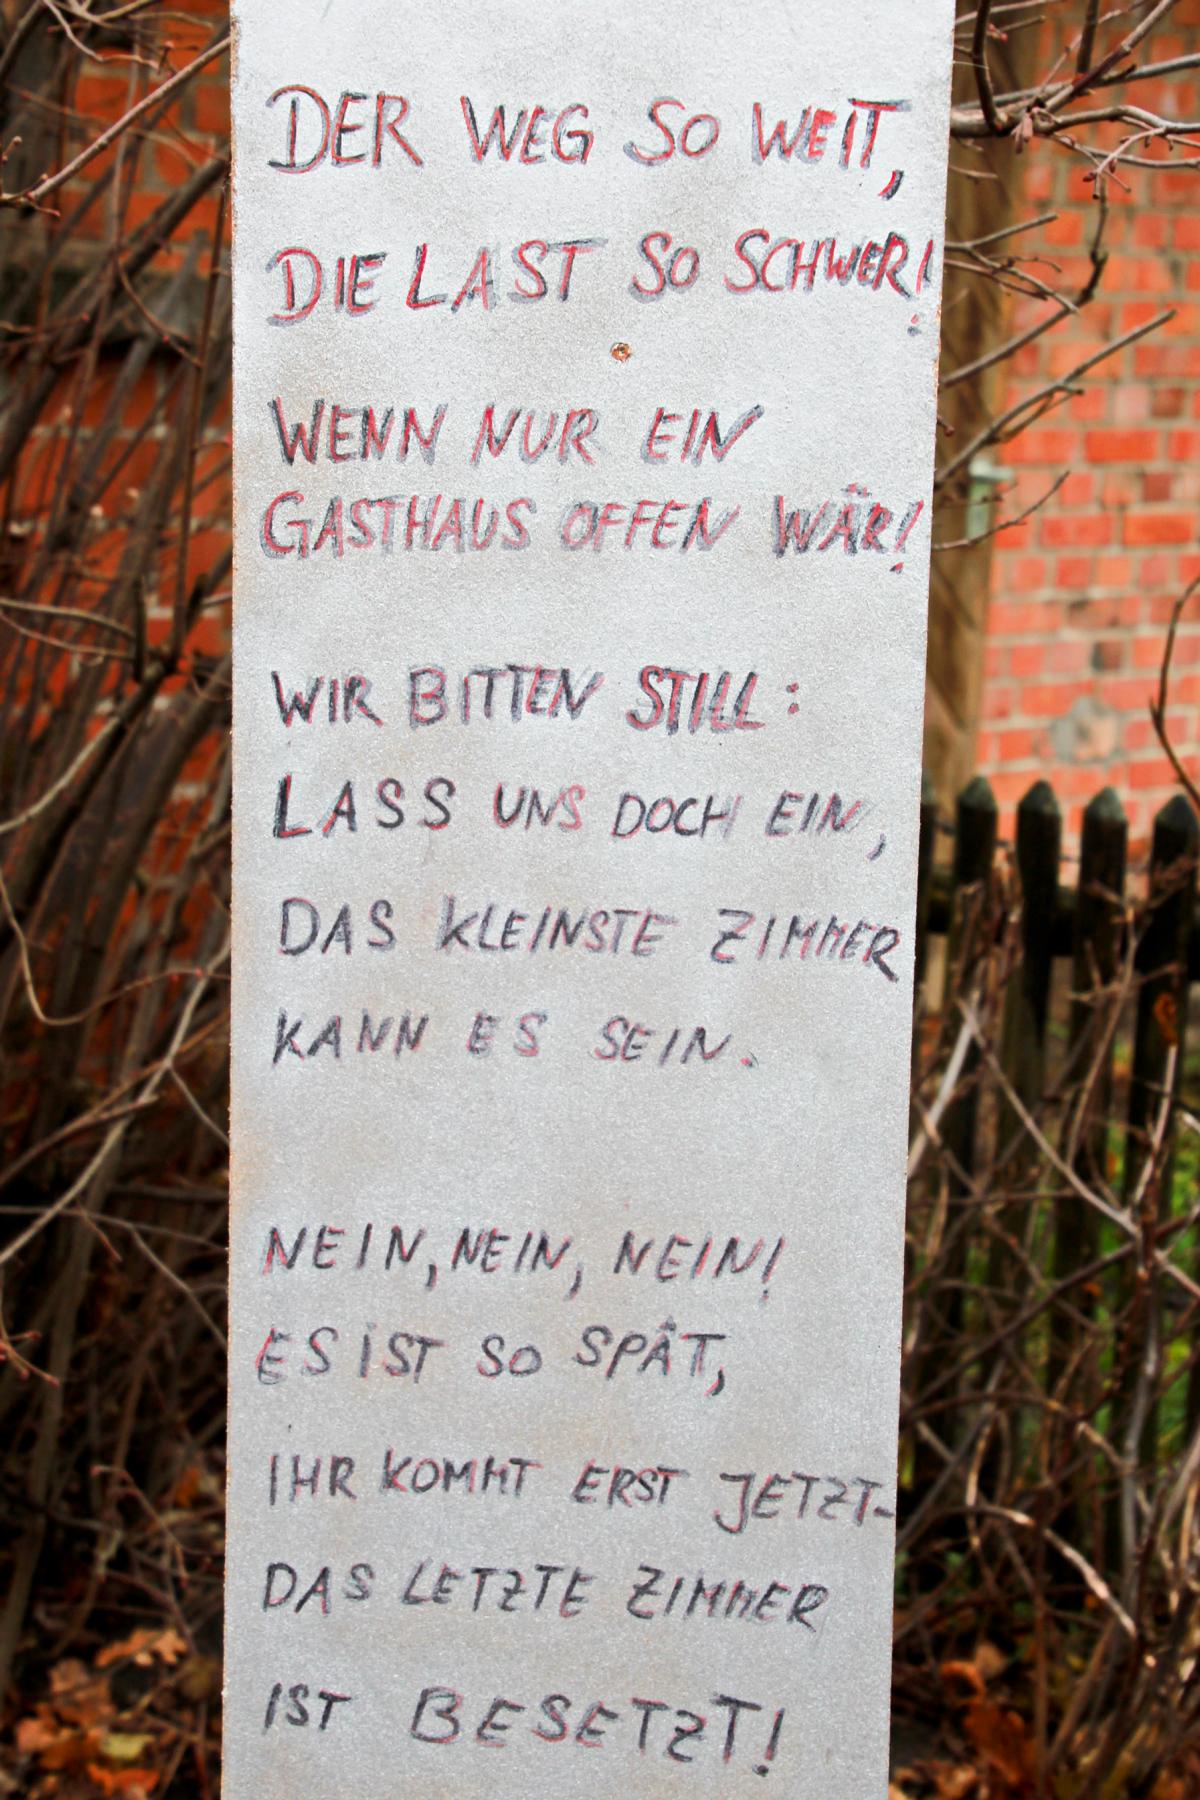 DER WEG SO WEIT,
DIE LAST SO SCHWER!
WENN NUR EIN
GASTHAUS OFFEN WÄR!
WIR BITTEN STILL:
LASS UNS DOCH EIN,
DAS KLEINSTE ZIMMER
KANN ES SEIN.
NEIN, NEIN, NEIN!
ES IST SO SPÄT,
IHR KOMMT ERST JETZT-
DAS LETZTE ZIMMER
IST BESETZT!